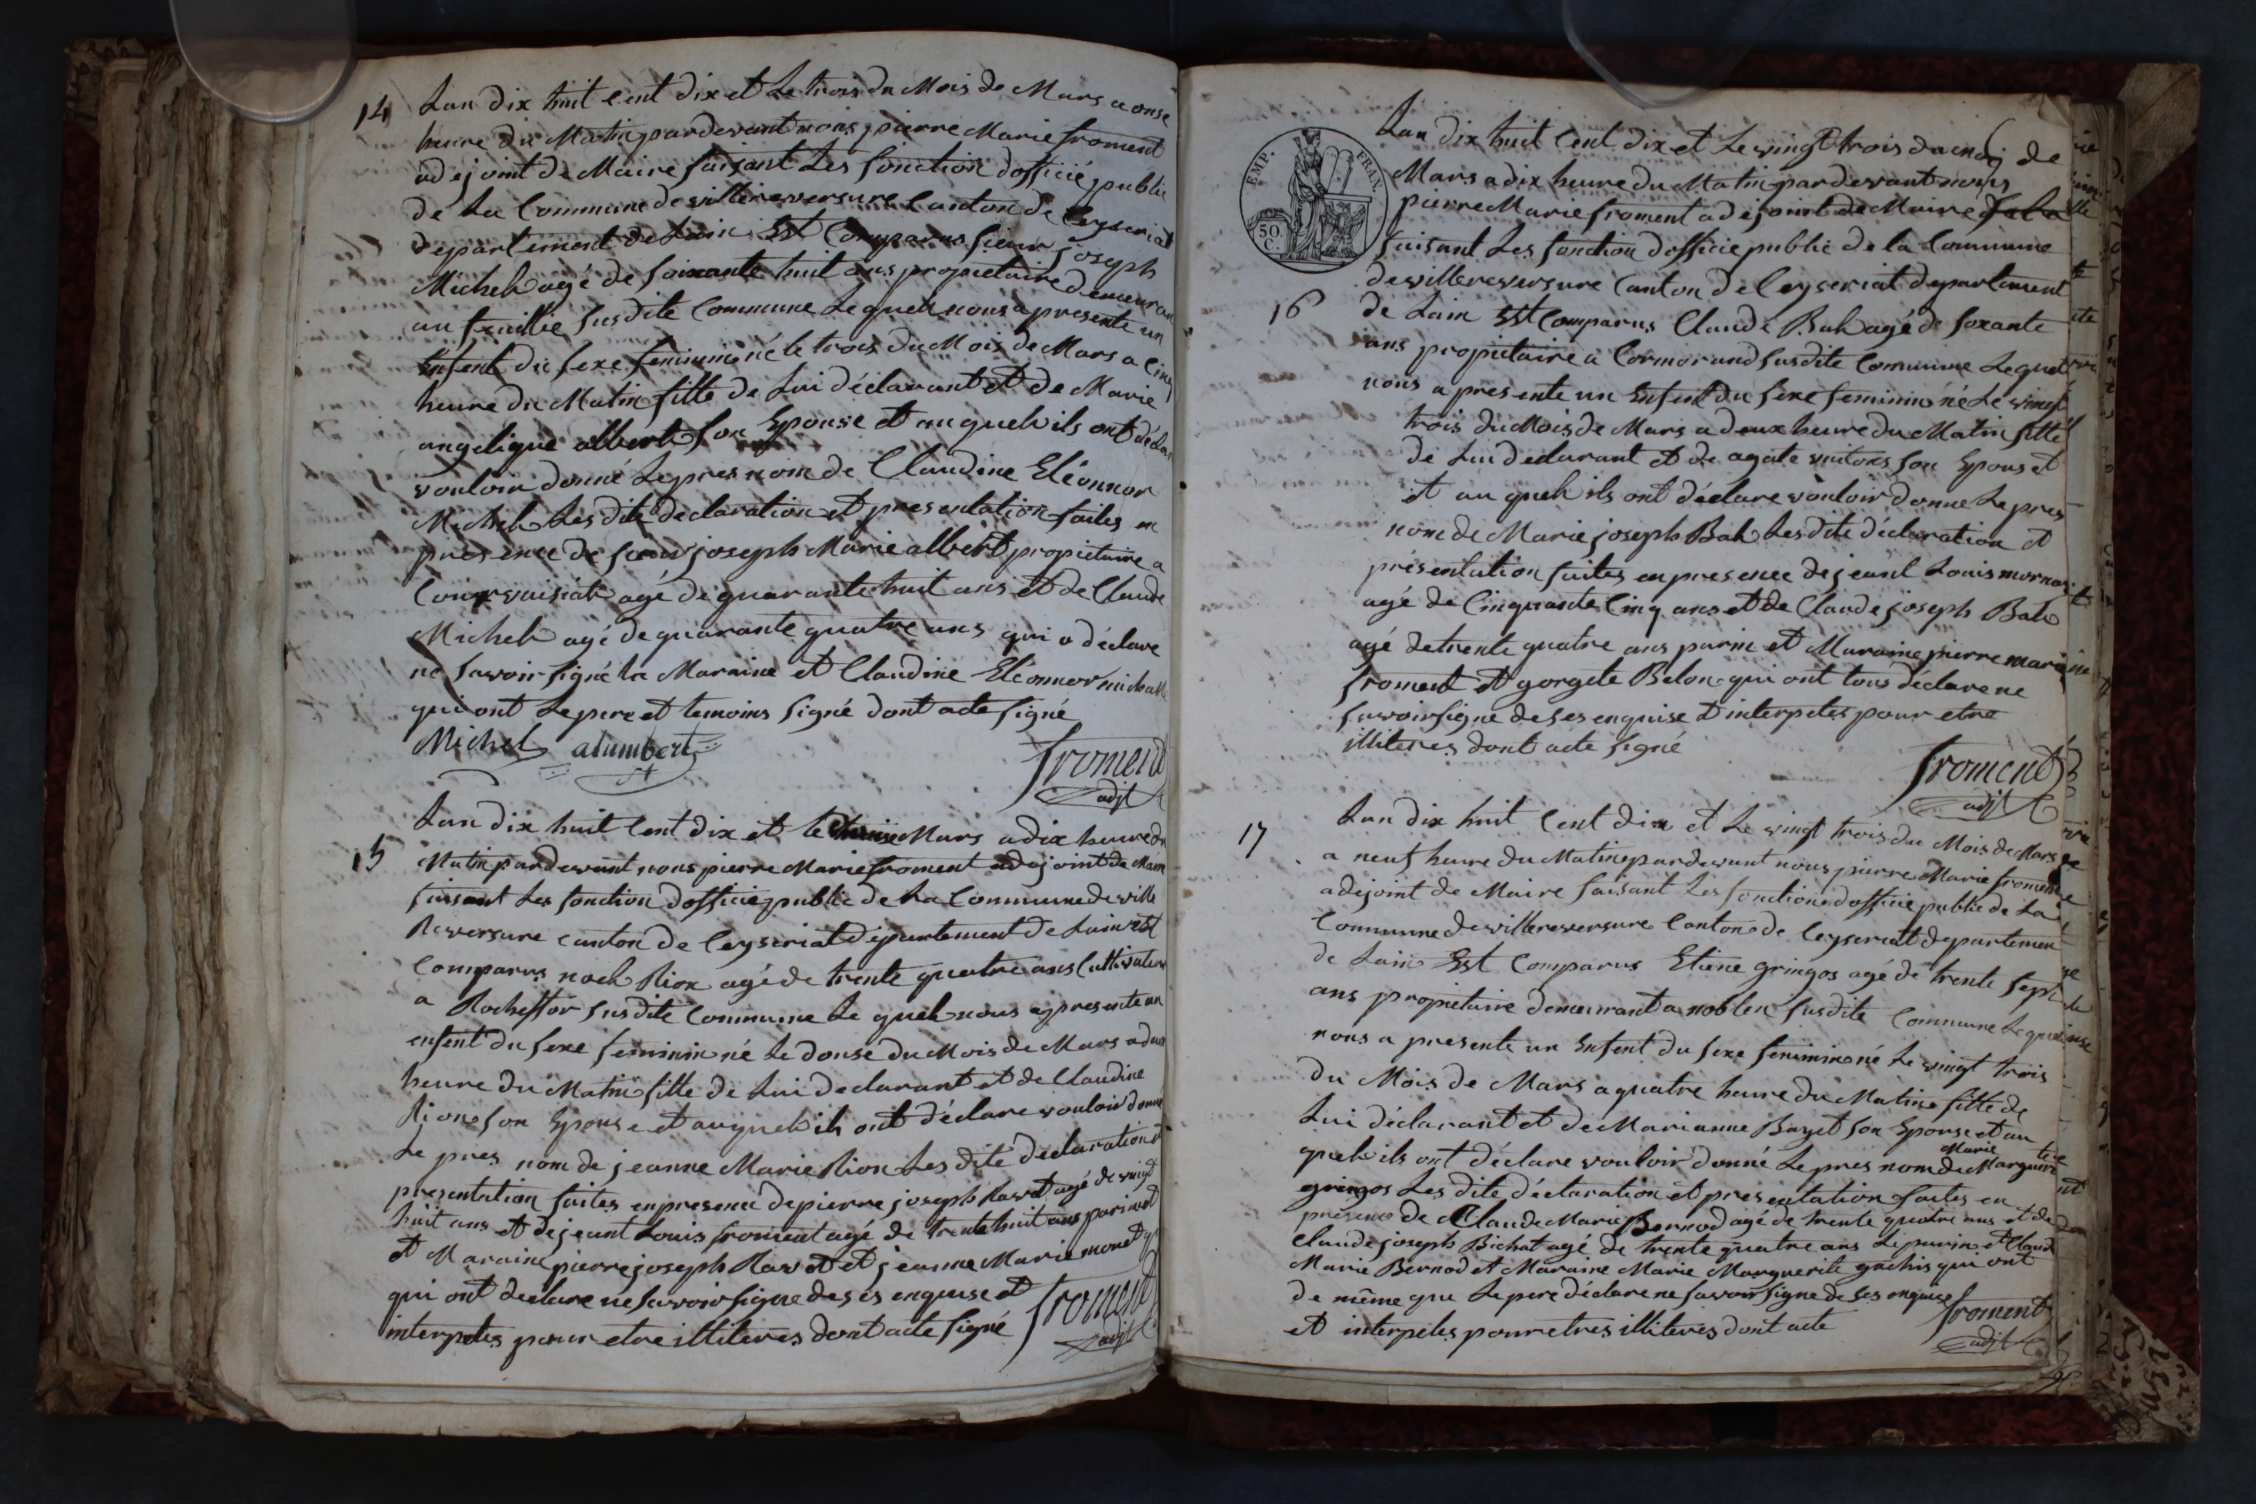 14
Lan dix huit Cent dix et Le trois du Mois de Mars a onse
heure du Matin pardevant nous pierre Marie froment
adejoint de Maire faisant Les fonction dofficié public
de La Commune de villereversure Canton de Ceyseriat
departement de Lain Est Comparus sieur joseph
Michel agé de soixante huit ans propietaire demeuran
au feuillie susdite Commune Le quel nous a presente un
Enfent du sexe feminin né le trois du Mois de Mars a Cinq
heure du Matin fille de Lui déclarant et de Marie
angelique albert son Epouse et au quel ils ont déclar
vouloir donné Le pres nom de Claudine Eléonnor
Michel Les dite declaration et presentation faites en
presence de sieur joseph Marie albert propietaire a
agé de quarante huit ans et de Claude
Michel agé de quarante quatre ans qui a déclare
ne savoir signé la Maraine et Claudine Eléonnor michel
qui ont Le pere et temoins signé dont acte signé
Michel alumbert froment
adjt
15
Lan dix huit Cent dix et le Mars a dix heure du
Matin pardevant nous pierre Marie froment adejoint de Maire
faisant Les fonction dofficié public de La Commune de ville
Reversure canton de Ceyseriat département de Lain est
Comparus noel Rion agé de trente quatre ans Cultivateur
a Rocheffor susdite Commune Le quel nous a presente un
enfent du sexe feminin né Le douse du Mois de Mars a deux
heure du Matin fille de Lui declarant et de Claudine
Rion son Epouse et au quel ils ont déclare vouloir donné
Le pres nom de jeanne Marie Rion Les dite declaration et
presentation faites en presence de pierre joseph Ravet agé de vingt
huit ans et de jeant Louis froment agé de trente huit ans parin et
et Maraine pierre joseph Ravet et jeanne Marie monet
qui ont declare ne savoir signe de ses enquise et
interpetes pour etre illiteres dont acte signé
froment
adjt
EMP. FRAN.
50 C.
Lan dix huit Cent dix et Le vingt trois du moi de
Mars a dix heure du Matin pardevant nous
pierre Marie froment adejoint de Maire
faisant Les fonction dofficié public de la Commune
de villereversure Canton de Ceyseriat departement
16
de Lain Est Comparus Claude Bal agé de soxante
ans propietaire a Cormorand susdite Commune Le quel
nous a presente un Enfent du sexe feminin né Le vingt
trois du Mois de Mars a deux heure du Matin fille
de Lui declarant et de agate son Epouse et
et au quel ils ont déclare vouloir donne Le pres
nom de Marie joseph Bal Les dite déclaration et
présentation faites en presence de jeant Louis
agé de Cinquante Cinq ans et de Claude joseph Bal
agé de trente quatre ans parin et Maraine pierre marie
froment et gorgete Belon qui ont tous déclare ne
savoir signe de ses enquise et interpetes pour etre
illiteres dont acte signé
froment
adjt
17
Lan dix huit Cent dix et Le vingt trois du Mois de Mars
a neuf heure du Matin pardevant nous pierre Marie froment
adejoint de Maire faisant Les fonction dofficié public de La
Commune de villereversure Canton de Ceyseriat departemen
de Lain Est Comparus Etiene gringos agé de trente sept
ans propietaire demeurant a noblen susdite Commune Le quel
nous a presente un Enfent du sexe feminin né Le vingt trois
du Mois de Mars a quatre heure du Matin fille de
Lui déclarant et de Marianne Buyet son Epouse et au
quel ils ont déclare vouloir donné Le pres nom de Marie Marguerite
gringos Les dite déclaration et presentation faites en
presence de Claude Marie Bernod agé de trente quatre ans et de
Claude joseph Bichat agé de trente quatre ans Le parin et Claude
Marie Bernod et Maraine Marie Marguerite gachis qui ont
de même que Le pere déclare ne savoir signe de ses enquise
et interpeles pour etres illiteres dont acte
froment
adjt